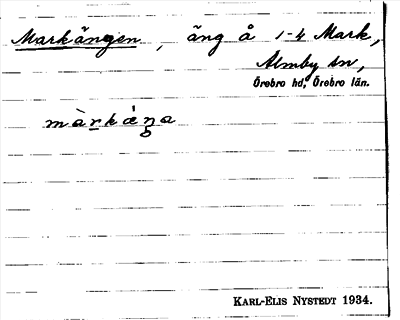 Markängen, äng å 1-4 Mark,
Almby sn,
Örebro hd, Örebro län.
màrkæ̀ŋa
KARL-ELIS NYSTEDT 1934.